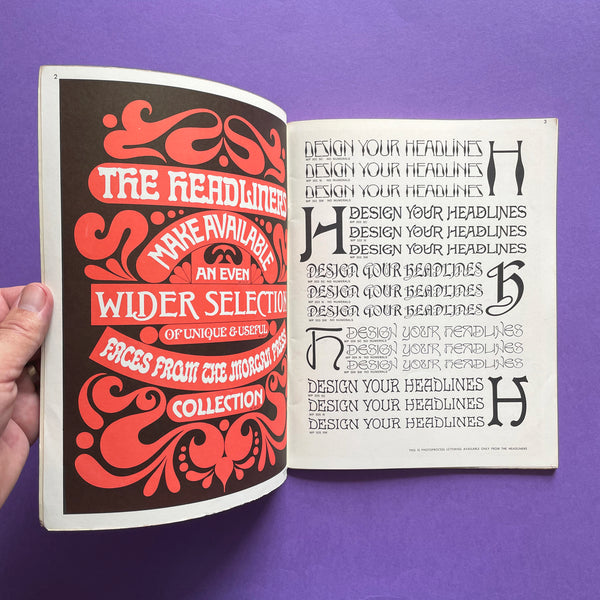 2
THE HEADLINERS
MAKE AVAILABLE
AN EVEN
WIDER SELECTION
OF UNIQUE & USEFUL
FACES FROM THE MORGAN PRESS
COLLECTION
3
DESIGN YOUR HEADLINES
DESIGN YOUR HEADLINES
DESIGN YOUR HEADLINES
H
H
DESIGN YOUR HEADLINES
DESIGN YOUR HEADLINES
DESIGN YOUR HEADLINES
DESIGN YOUR HEADLINES
DESIGN YOUR HEADLINES
DESIGN YOUR HEADLINES
H
H
DESIGN YOUR HEADLINES
DESIGN YOUR HEADLINES
DESIGN YOUR HEADLINES
DESIGN YOUR HEADLINES
DESIGN YOUR HEADLINES
DESIGN YOUR HEADLINES
H
THIS IS PHOTOPROCESS LETTERING AVAILABLE ONLY FROM THE HEADLINERS